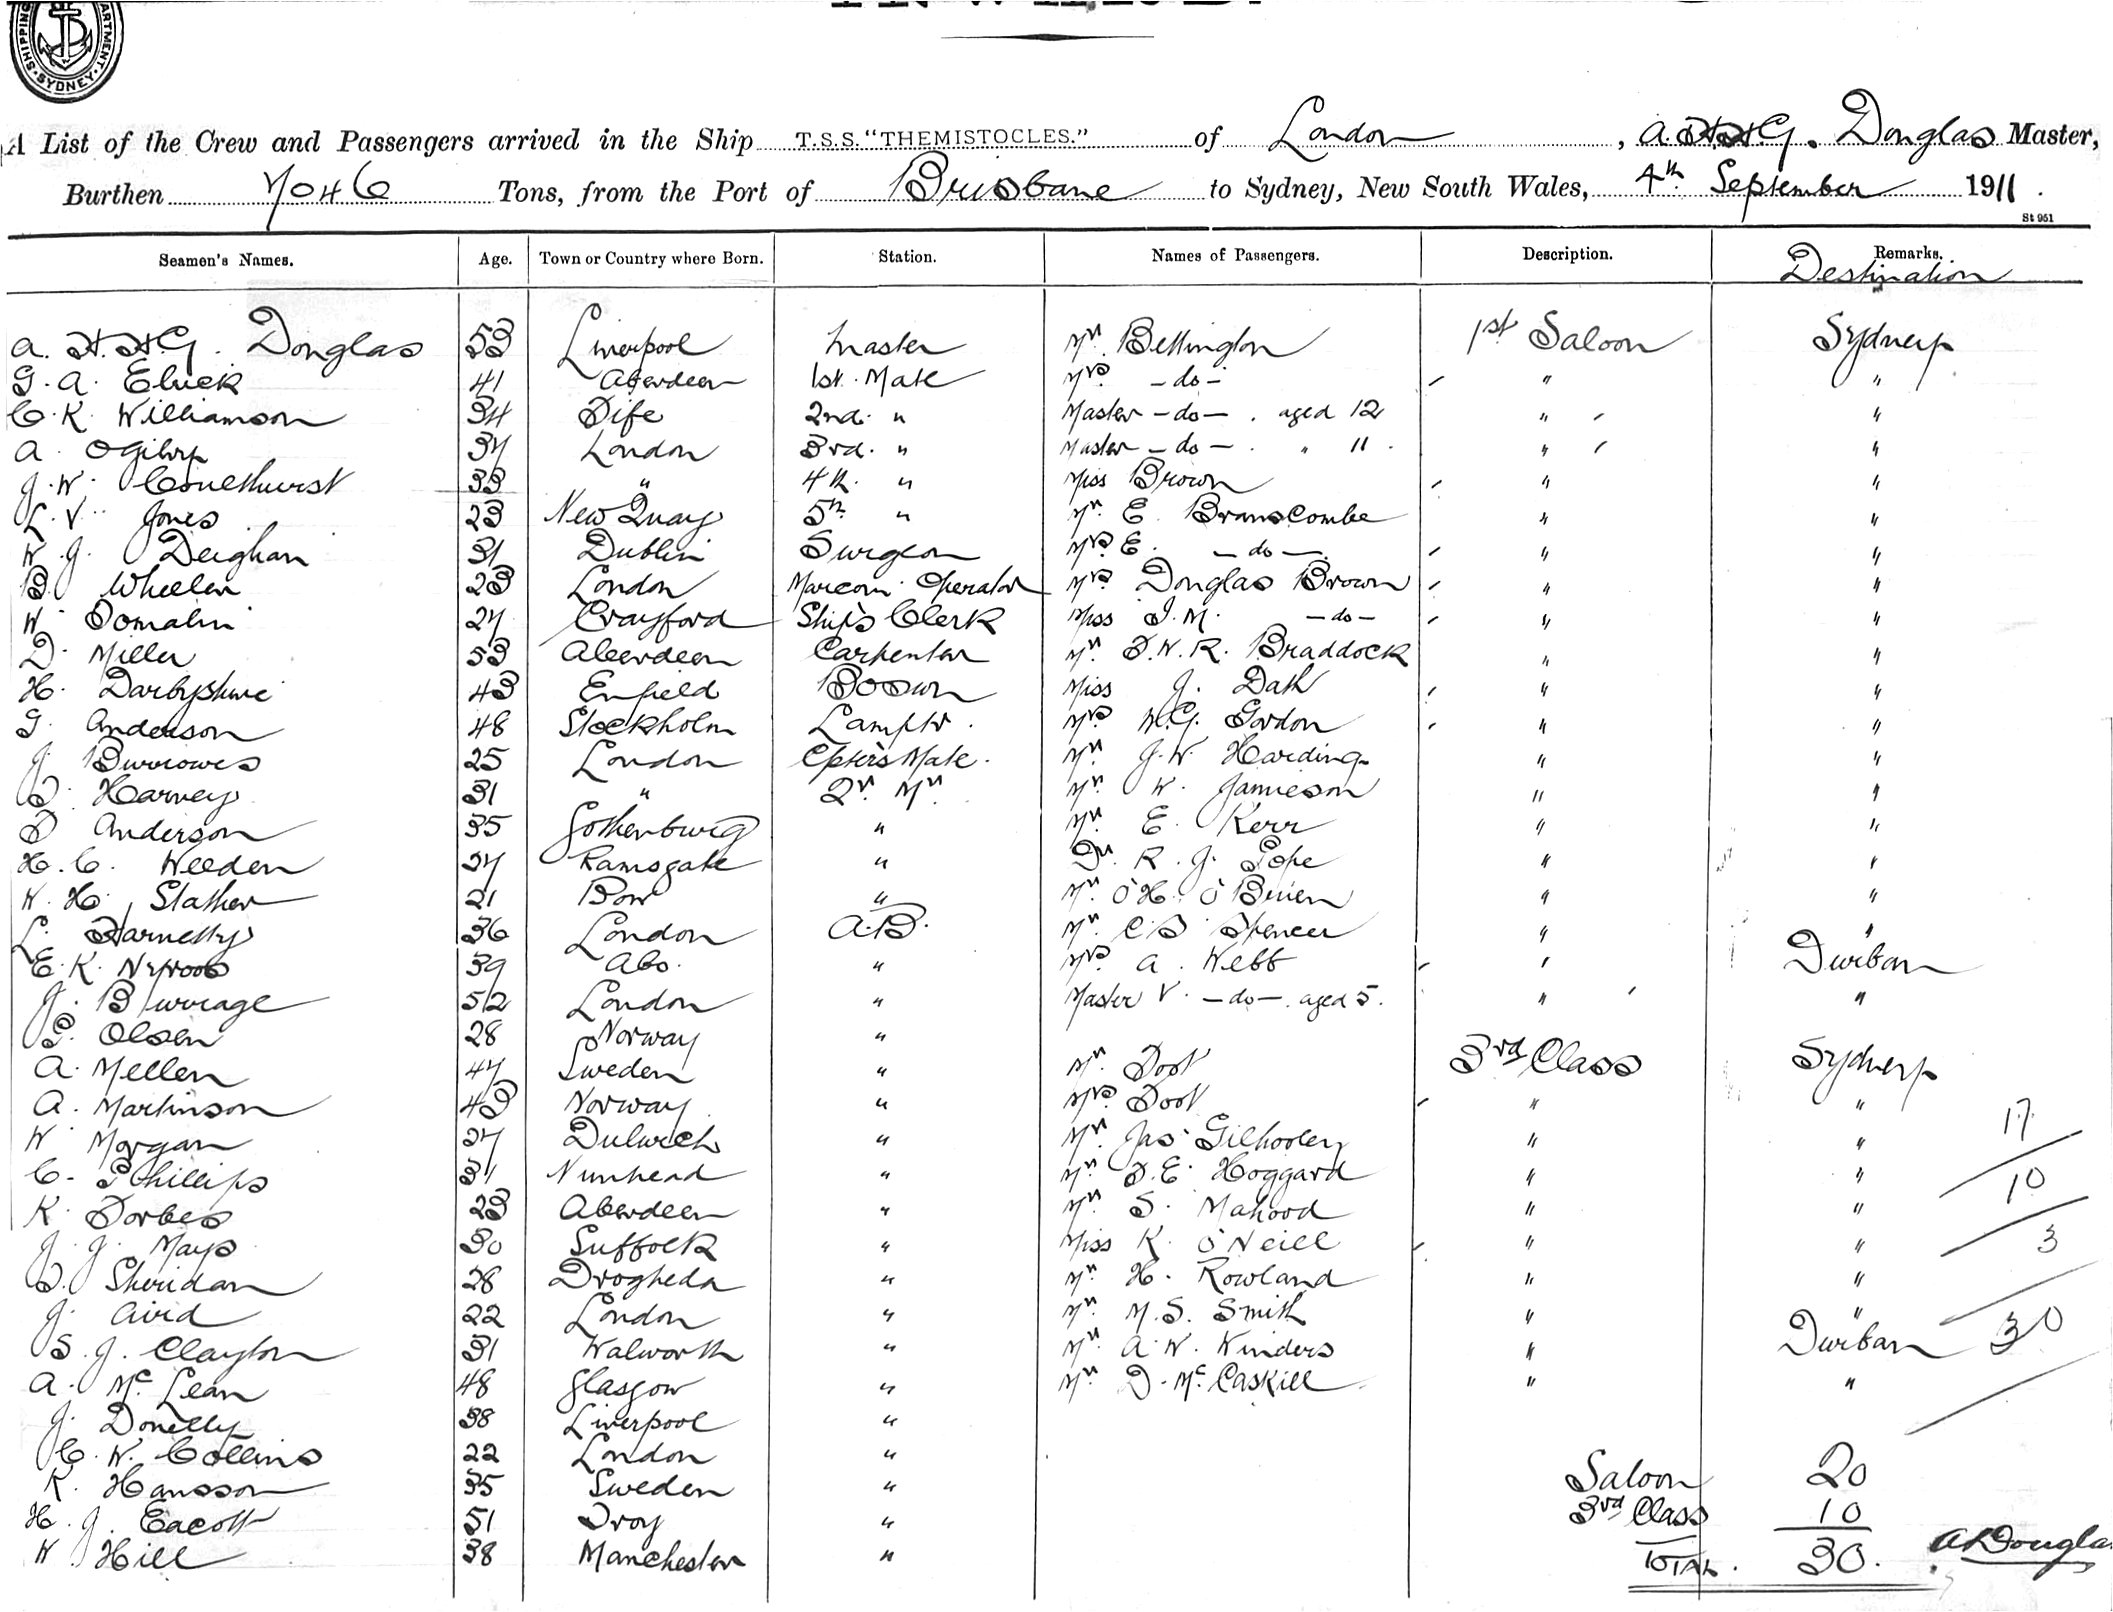 SHIPPING DEPARTMENT SYDNEY
A List of the Crew and Passengers arrived in the Ship T.S.S. "THEMISTOCLES." of London, A. H. H. G. Douglas Master,
Burthen 7046 Tons, from the Port of Brisbane to Sydney, New South Wales, 4th September 1911.
St 951
Seamen's Names. Age. Town or Country where Born. Station. Names of Passengers. Description. Remarks.
Destination
A. H. H. G. Douglas 53 Liverpool Master Mr. Bettington 1st Saloon Sydney
G. A. 41 Aberdeen 1st. Mate Mrs. - do - " "
C. K. Williamson 34 Fife 2nd. " Master - do - . aged 12 " "
A. Ogilvy 37 London 3rd. " Master - do - . " 11 . " "
J. W. Coulthurst 33 " 4th. " Miss Brown " "
L. V. Jones 23 New Quay 5th " Mr. E. Branscombe " "
W. J. Deighan 31 Dublin Surgeon Mrs E. - do - . " "
B. Wheeler 23 London Marconi Operator Mrs Douglas Brown " "
W. Tomalin 27 Crayford Ship's Clerk Miss I. M. - do - " "
D. Miller 53 Aberdeen Carpenter Mr. F. W. R. Braddock " "
H. Darbyshire 43 Enfield Bosun Miss J. Dath " "
G. Anderson 48 Stockholm Lamptr. Mrs W. G. Gordon " "
J. Burrowes 25 London Cpter's Mate. Mr. J. W. Harding " "
T. Harvey 31 " Qr. Mr. Mr. W. Jamieson " "
F. Anderson 35 Gothenburg " Mr. E. Kerr " "
H. C. Weeden 37 Ramsgate " Dr. R. J. Pope " "
W. H. Stather 21 Bow " Mr. O'H. O'Brien " "
L. Harnetty 36 London A.B. Mr. C B Spencer " "
E. K. 39 Abo. " Mrs A. Webb " Durban
J. Burrage 52 London " Master V. - do - . aged 5. " "
P. Olsen 28 Norway "
A. Mellen 47 Sweden " Mr. Foot 3rd Class Sydney
A. Martinson 43 Norway " Mrs. Foot " "
W. Morgan 27 Dulwich " Mr. Jas. Gilhooley " " 17
C. Phillips 31 Nunhead " Mr. F. E. Hoggard " " 10
K. Forbes 23 Aberdeen " Mr. S. Mahood " "
J. J. Mays 30 Suffolk " Miss K. O'Neill " " 3
T. Sheridan 28 Drogheda " Mr. H. Rowland " "
J. Aird 22 London " Mr. M. S. Smith " "
S. J. Clayton 31 Walworth " Mr. A. W. Winders " Durban 30
A. McLean 48 Glasgow " Mr. D. McCaskill " "
J. Donelly 38 Liverpool "
C. W. Collins 22 London "
K. Hansson 35 Sweden " Saloon 20
H. J. Eacott 51 Troy " 3rd Class 10
W. Hill 38 Manchester " TOTAL. 30. A Douglas